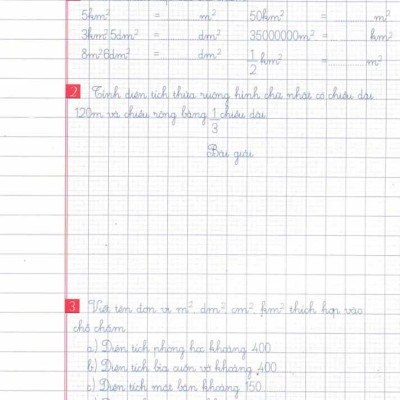 5km² = m² 50km² = m²
3km² 5dm² = dm² 35000000m² = km²
8m² 6dm² = dm² 1/2 km² = m²
2 Tính diện tích thửa ruộng hình chữ nhật có chiều dài
120m và chiều rộng bằng 1/3 chiều dài.
Bài giải
3 Viết tên đơn vị m², dm², cm², km² thích hợp vào
chỗ chấm
a) Diện tích phòng học khoảng 400
b) Diện tích bìa cuốn vở khoảng 400
c) Diện tích mặt bàn khoảng 150